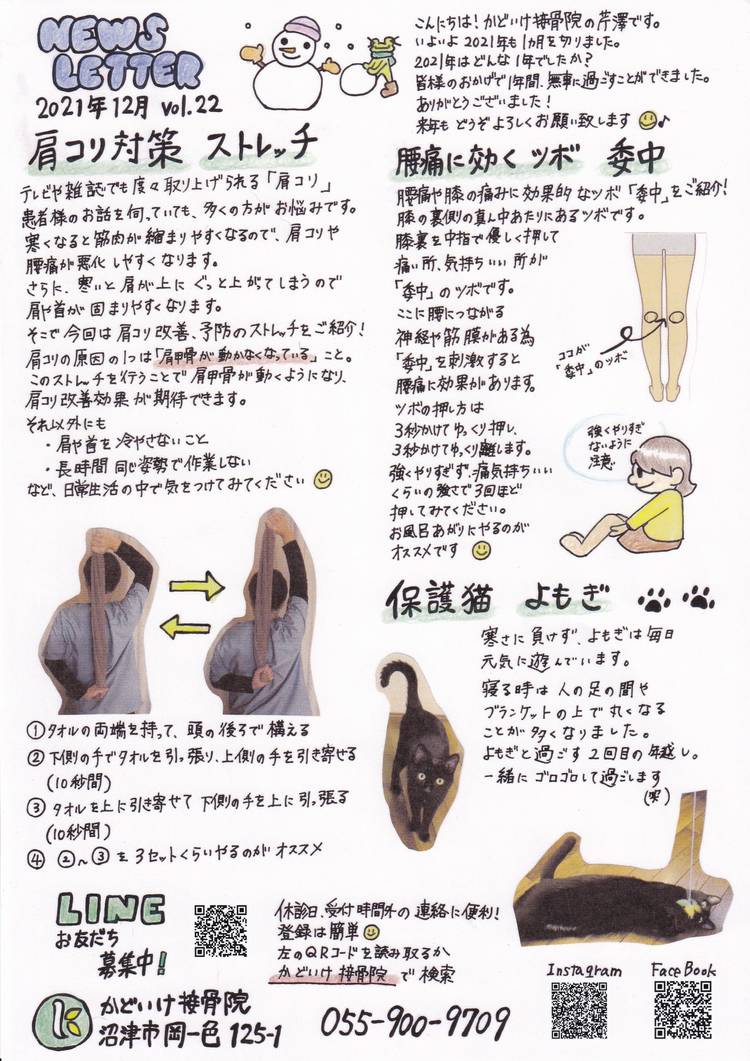 NEWS
LETTER
2021年12月 vol.22
こんにちは!かどいけ接骨院の芹澤です。
いよいよ2021年も1カ月を切りました。
2021年はどんな1年でしたか?
皆様のおかげで1年間、無事に過ごすことができました。
ありがとうございました!
来年もどうぞよろしくお願い致します
肩コリ対策 ストレッチ
テレビや雑誌でも度々取り上げられる「肩コリ」
患者様のお話を伺っていても、多くの方がお悩みです。
寒くなると筋肉が縮まりやすくなるので、肩コリや
腰痛が悪化しやすくなります。
さらに、寒いと肩が上にぐっと上がってしまうので
肩や首が固まりやすくなります。
そこで今回は肩コリ改善、予防のストレッチをご紹介!
肩コリの原因の1つは「肩甲骨が動かなくなっている」こと。
このストレッチを行うことで肩甲骨が動くようになり、
肩コリ改善効果が期待できます。
それ以外にも
・肩や首を冷やさないこと
・長時間同じ姿勢で作業しない
など、日常生活の中で気をつけてみてください
①タオルの両端を持って、頭の後ろで構える
②下側の手でタオルを引っ張り、上側の手を引き寄せる
(10秒間)
③タオルを上に引き寄せて下側の手を上に引っ張る
(10秒間)
④ ②〜③を3セットくらいやるのがオススメ
腰痛に効くツボ 委中
腰痛や膝の痛みに効果的なツボ「委中」をご紹介!
膝の裏側の真ん中あたりにあるツボです。
膝裏を中指で優しく押して
痛い所、気持ちいい所が
「委中」のツボです。
ここに腰につながる
神経や筋膜がある為
「委中」を刺激すると
腰痛に効果があります。
ツボの押し方は
3秒かけてゆっくり押し、
3秒かけてゆっくり離します。
強くやりすぎず、痛気持ちいい
くらいの強さで3回ほど
押してみてください。
お風呂あがりにやるのが
オススメです
ココが
「委中」のツボ
強くやりすぎ
ないように
注意!
保護猫 よもぎ
寒さに負けず、よもぎは毎日
元気に遊んでいます。
寝る時は人の足の間や
ブランケットの上で丸くなる
ことが多くなりました。
よもぎと過ごす2回目の年越し。
一緒にゴロゴロして過ごします
(笑)
LINE
お友だち
募集中!
休診日、受付時間外の連絡に便利!
登録は簡単
左のQRコードを読み取るか
かどいけ接骨院で検索
Instagram
FaceBook
かどいけ接骨院
沼津市岡一色125-1
055-900-9709